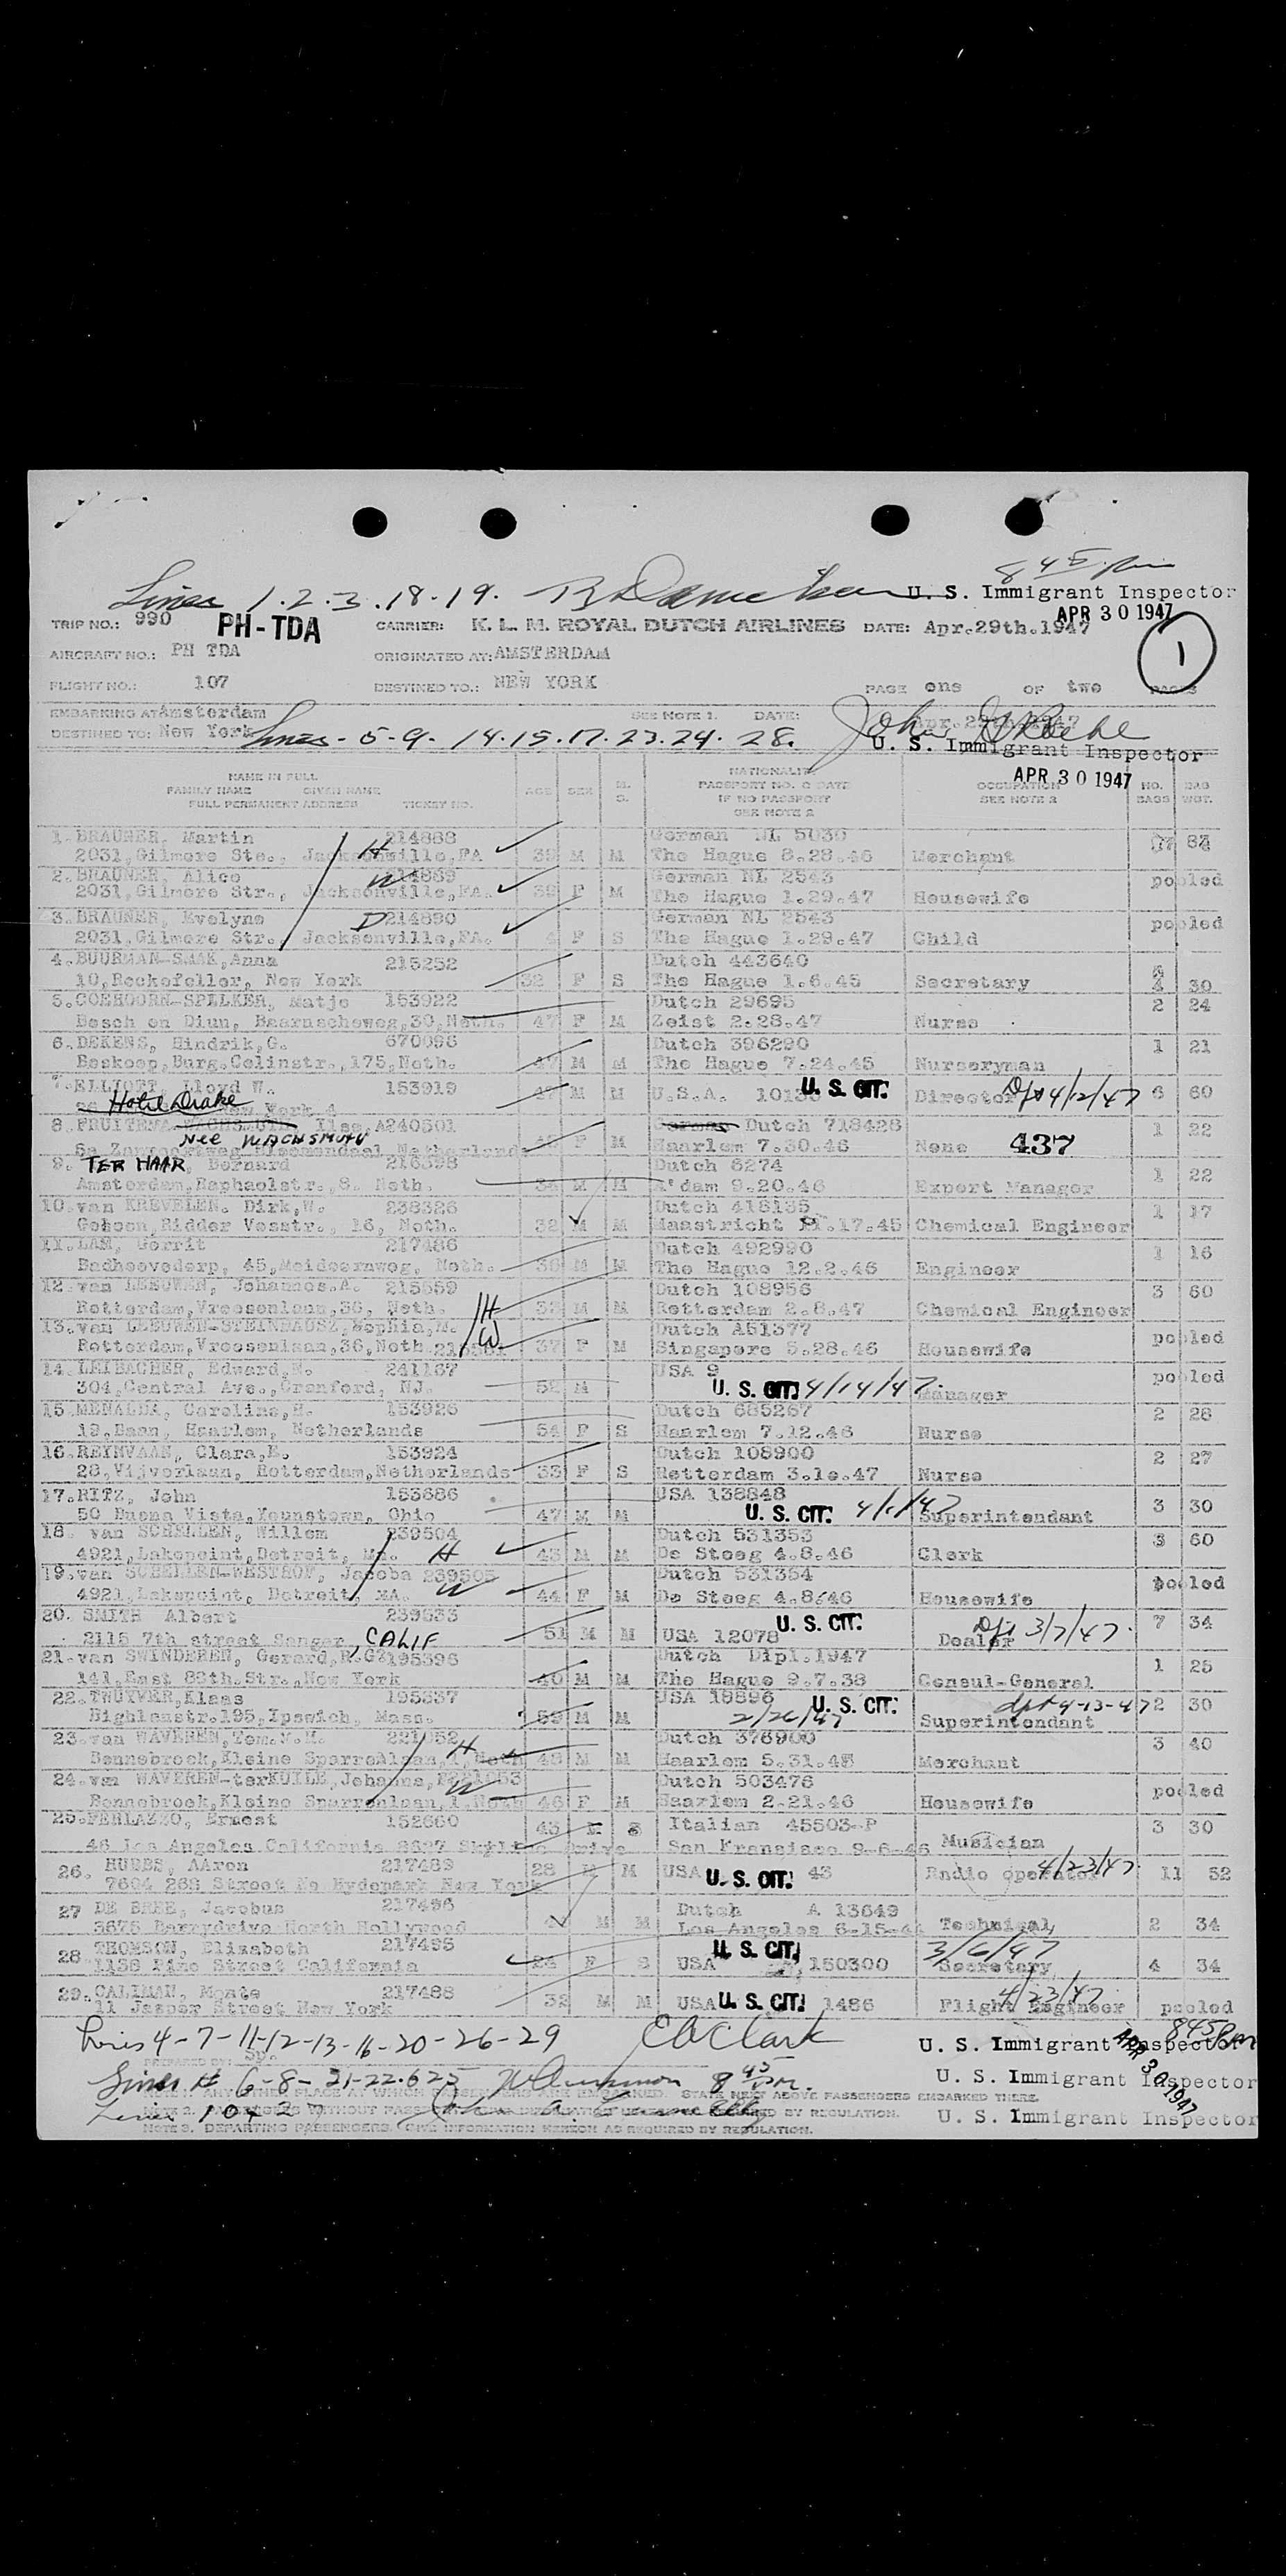 8 45 pm
Lines 1.2.3.18.19.
U. S. Immigrant Inspector
APR 30 1947
TRIP NO.: 990 PH-TDA CARRIER: K. L. M. ROYAL DUTCH AIRLINES DATE: Apr.29th.1947
AIRCRAFT NO.: PH TDA ORIGINATED AT: AMSTERDAM
1
FLIGHT NO.: 107 DESTINED TO.: NEW YORK PAGE one OF two PAGES
EMBARKING AT Amsterdam SEE NOTE 1. DATE: Apr.29th.1947
DESTINED TO: New York Lines - 5-9- 14.15.17.23.24. 28. John
U. S. Immigrant Inspector
APR 30 1947
NAME IN FULL NATIONALITY
FAMILY NAME GIVEN NAME AGE SEX M. S. PASSPORT NO. & DATE OCCUPATION NO. BAG
FULL PERMANENT ADDRESS TICKET NO. IF NO PASSPORT SEE NOTE 2 BAGS WGT.
SEE NOTE 2
1. BRAUNER, Martin 214888 German NL 5030
2031,Gilmore Ste., Jacksonville,FA H 39 M M The Hague 8.28.46 Merchant
2. BRAUNER, Alice 214889 German NL 2543 pooled
2031,Gilmore Str., Jacksonville,FA. W 39 F M The Hague 1.29.47 Housewife
3. BRAUNER, Evelyne D 214890 German NL 2543 pooled
2031,Gilmore Str., Jacksonville,FA. 4 F S The Hague 1.29.47 Child
4. BUURMAN-SAAK,Anna 215252 Dutch 443640
10,Rockefeller, New York 32 F S The Hague 1.6.45 Secretary 4 30
5. COEHOORN-SPELKER, Matje 153922 Dutch 29695 2 24
Bosch en Diun, Baarnscheweg,30,Neth. 47 F M Zeist 2.28.47 Nurse
6. DEKENS, Hindrik,G. 670096 Dutch 396290 1 21
Boskoop,Burg.Colinstr.,175,Neth. 47 M M The Hague 7.24.45 Nurseryman
7. ELLIOTT, Lloyd W. 153919 U.S.A. U. S. CIT. Director 4/12/47 6 60
Hotel Drake New York 4
8. FRUITEMA Ilse, A240501 German Dutch 718428 1 22
Nee WACHSMUTH
Netherland F M Haarlem 7.30.46 None 437
9. TER HAAR, Bernard 216398 Dutch 6274 1 22
Amsterdam,Raphaelstr.,8. Neth. M M A'dam 9.20.46 Export Manager
10. van KREVELEN. Dirk,W. 238326 Dutch 418135 1 17
Geleen,Ridder Vosstr., 16, Neth. 32 M M Maastricht 11.17.45 Chemical Engineer
11. LAM, Gerrit 217486 Dutch 492990 1 16
Badhoevedorp, 45,Meidoornweg, Neth. 36 M M The Hague 12.2.46 Engineer
12. van LEEUWEN, Johannes.A. 215559 Dutch 108956 3 60
Rotterdam,Vroesenlaan,36, Neth. H 32 M M Rotterdam 2.8.47 Chemical Engineer
13. van LEEUWEN-STEINHAUSZ,Sophia,M. Dutch A51377 pooled
Rotterdam,Vroesenlaan,36,Neth W 37 F M Singapore 5.28.46 Housewife
14. LEIBACHER, Edward,N. 241167 USA 9 pooled
304,Central Ave.,Cranford, NJ. 52 M U. S. CIT. 4/14/47. Manager
15. MENALDA, Caroline,H. 153926 Dutch 685267 2 28
19,Baan, Haarlem, Netherlands 54 F S Haarlem 7.12.46 Nurse
16. REINVAAN, Clara,E. 153924 Dutch 108900 2 27
28,Vijverlaan, Rotterdam,Netherlands 33 F S Rotterdam 3.10.47 Nurse
17. RITZ, John 153686 USA 138848 3 30
50 Buena Vista,Younstown, Ohio 47 M M U. S. CIT. 4/1/47 Superintendant
18. van SCHELLEN, Willem 239504 Dutch 531353 3 60
4921,Lakepoint,Detroit, H 43 M M De Steeg 4.8.46 Clerk
19. van SCHELLEN-WESTHOF, Jacoba 239505 Dutch 531354 pooled
4921,Lakepoint, Detroit, MA. W 44 F M De Steeg 4.8/46 Housewife
20. SMITH Albert 239533 U. S. CIT. 3/7/47. 7 34
2115 7th street Sanger, CALIF 51 M M USA 12078 Dealer
21. van SWINDEREN, Gerard,R.G 195396 Dutch Dipl.1947 1 25
141,East 88th.Str.,New York 40 M M The Hague 9.7.38 Consul-General
22. TWUYVER,Klaas 195337 USA 19896 U. S. CIT. dpt 4-13-47 2 30
Highlanstr.195,Ipswich, Mass. 59 M M 2/26/47 Superintendant
23. van WAVEREN,Tom.N.H. Dutch 376900 3 40
Bennebroek,Kleine Sparrenlaan, H 48 M M Haarlem 5.31.45 Merchant
24. van WAVEREN-terKUILE,Johanna, Dutch 503476 pooled
Bennebroek,Kleine Sparrenlaan,1,Neth W 46 F M Haarlem 2.21.46 Housewife
25. FERLAZZO, Ernest 152660 43 M S Italian 45503-P 3 30
46 Los Angeles California 8627 Drive San Fransisco 9-6-46 Musician
26. HUBBS, AAron 217489 28 M M USA U. S. CIT. 43 Radio operator 4/23/47 11 52
7604 Street Hydepark New York
27 DE BREE, Jacobus 217496 Dutch A 13649
3675 Berrydrive North Hollywood M M Los Angeles 6-15-44 Technical 2 34
28 THOMSON, Elisabeth 217495 U. S. CIT. 3/6/47
1136 Pine Street California 24 F S USA 150300 Secretary 4 34
29. CALIMAN, Monte 217488 4/23/47
11 Jasper Street New York 32 M M USA U. S. CIT. 1486 Flight Engineer pooled
Lines 4-7-11-12-13-16-20-26-29 C A Clark U. S. Immigrant Inspector
845 Pm
PREPARED BY:
APR 30 1947
Lines # 6-8-21-22 8 45 PM. U. S. Immigrant Inspector
U. S. Immigrant Inspector
NOTE 3. DEPARTING PASSENGERS. GIVE INFORMATION HEREON AS REQUIRED BY REGULATION.